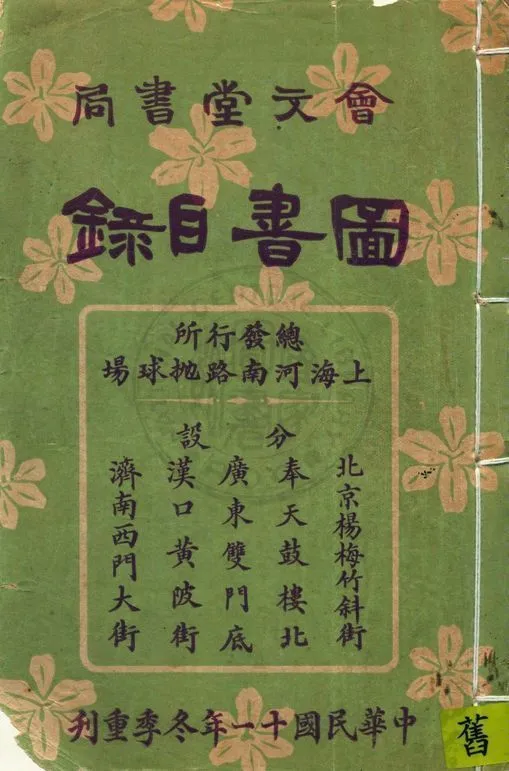 會文堂書局
圖書目錄
總發行所
上海河南路抛球場
分設
北京楊梅竹斜街
奉天鼓樓北
廣東雙門底
漢口黃陂街
濟南西門大街
中華民國十一年冬季重刊
舊